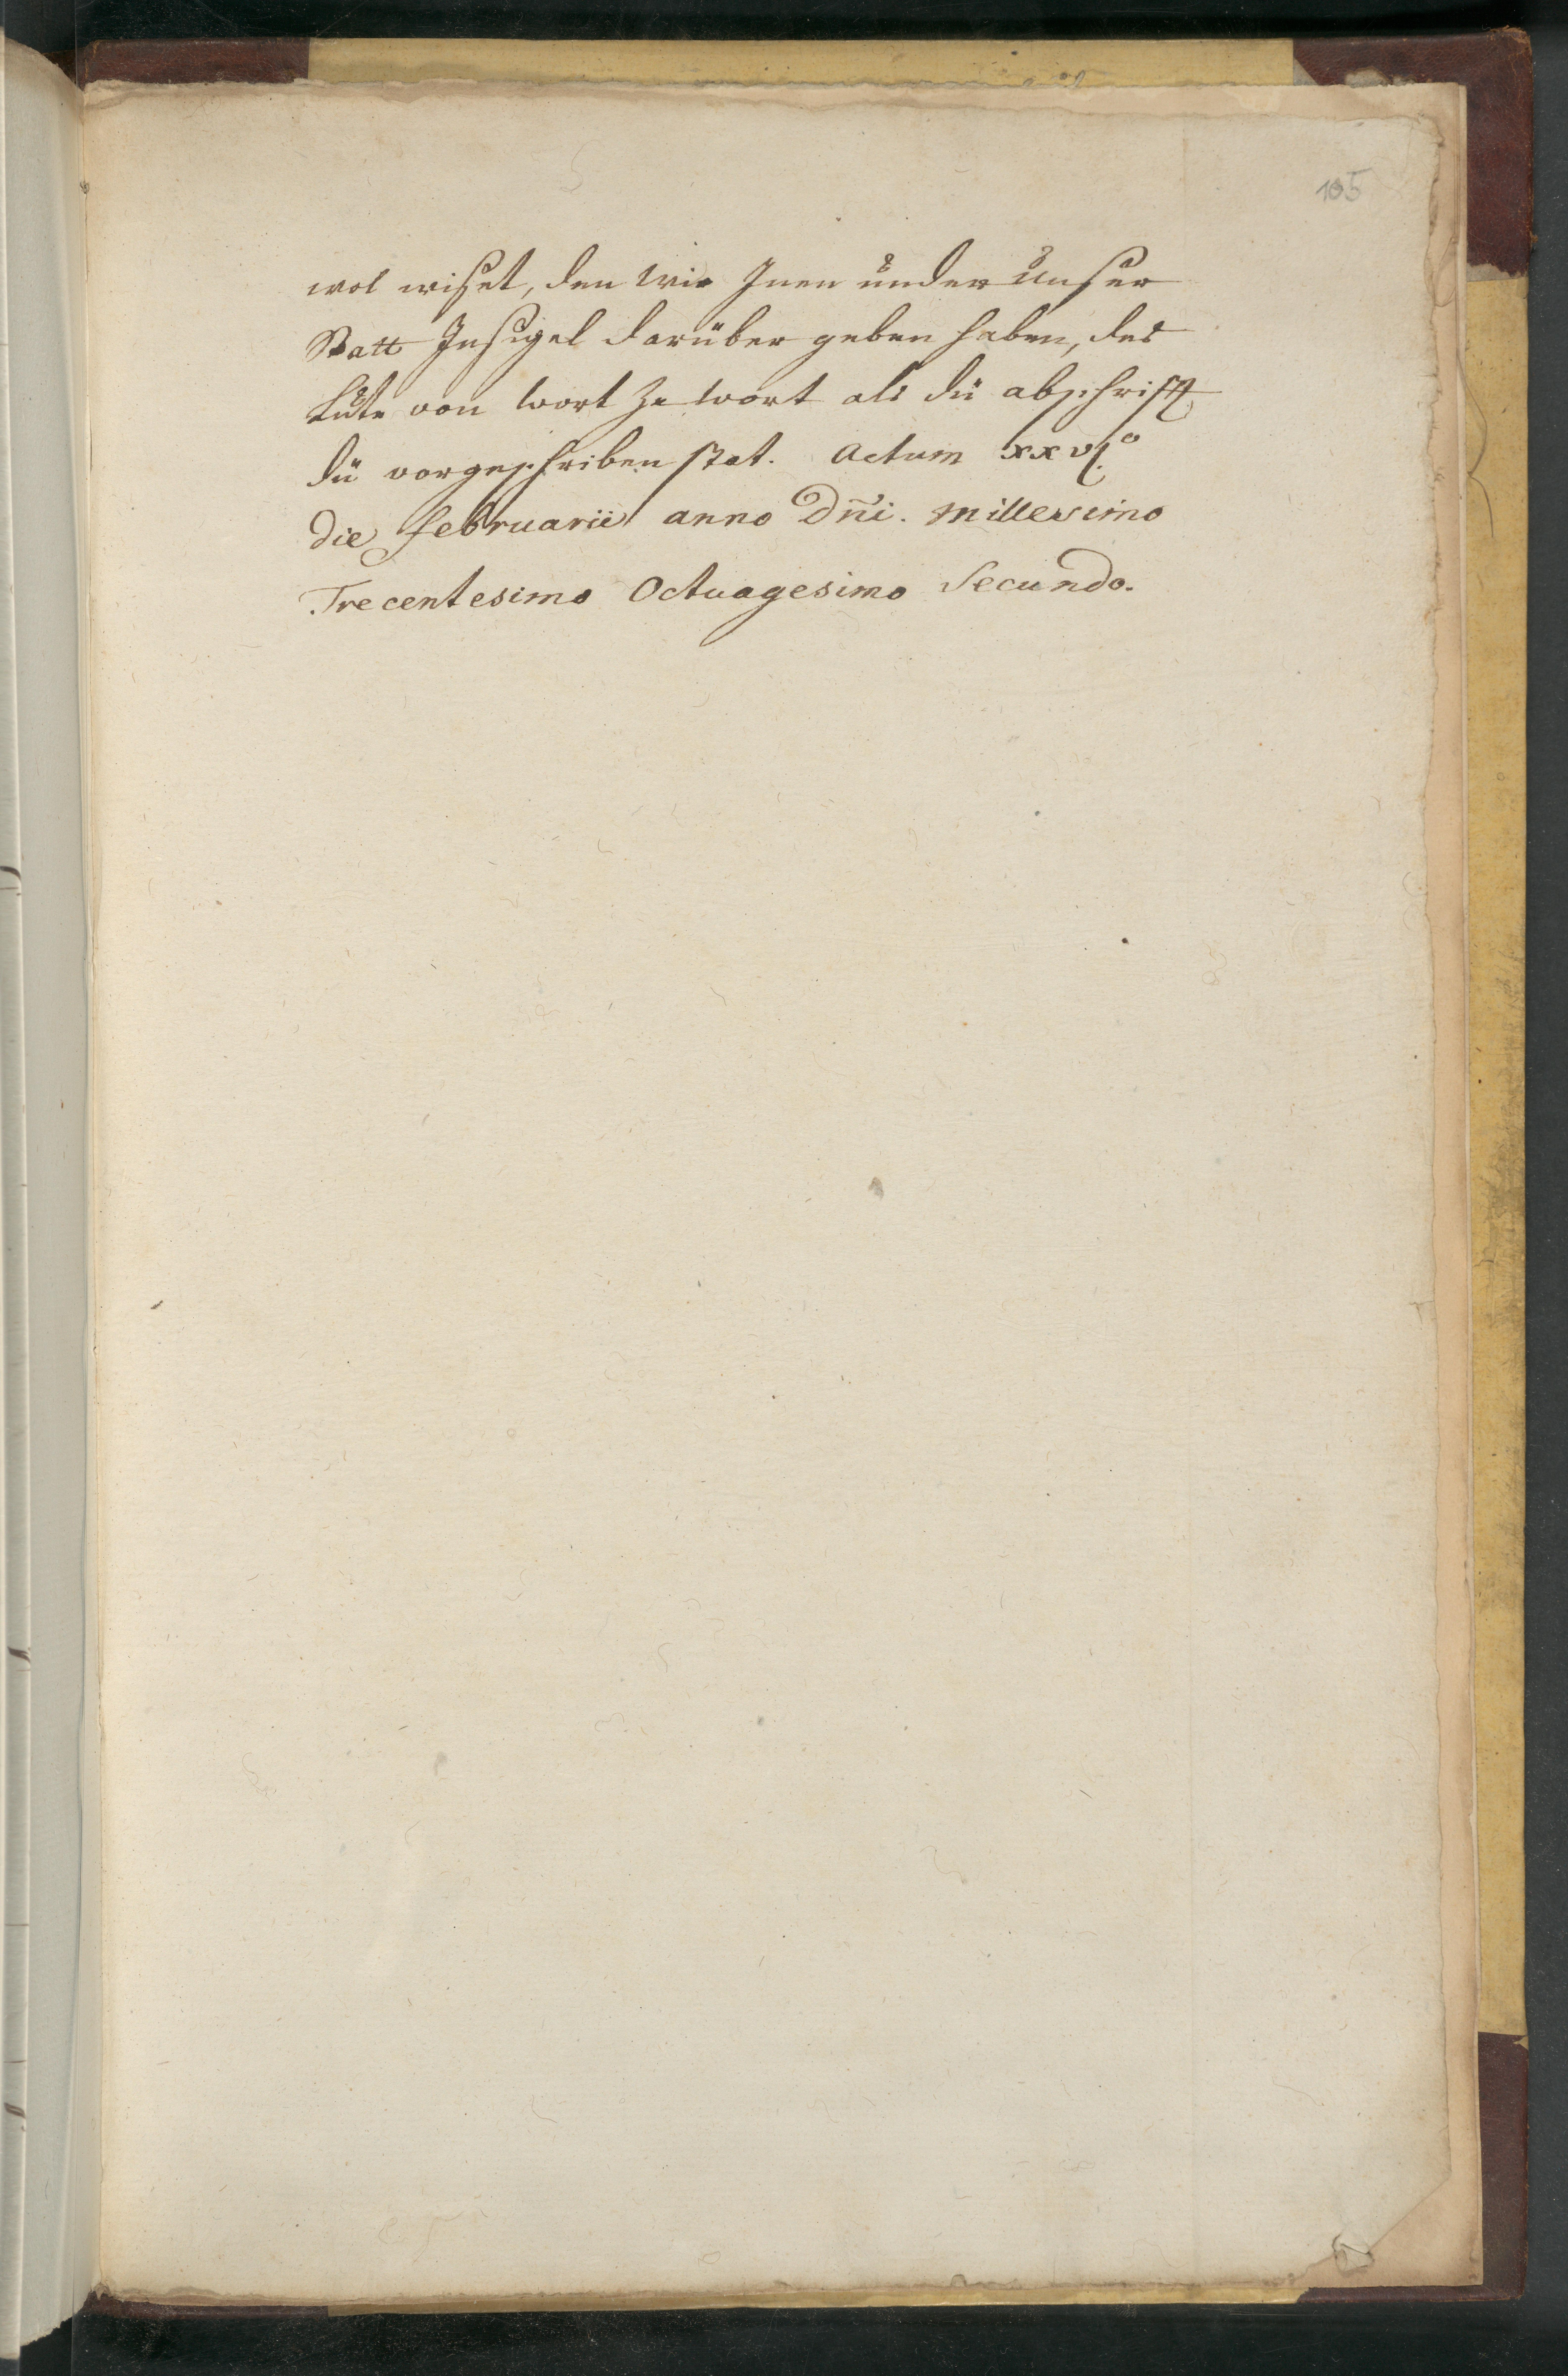 105
wol wiset, den wir Inen under unser
Statt Insigel darüber geben haben, der
Lute von wort ze wort als dü abschrift,
dü vorgeschriben stat. Actum xxvj.º
die februarii anno Dn̄i. Millesimo
Trecentesimo Octuagesimo Secundo.